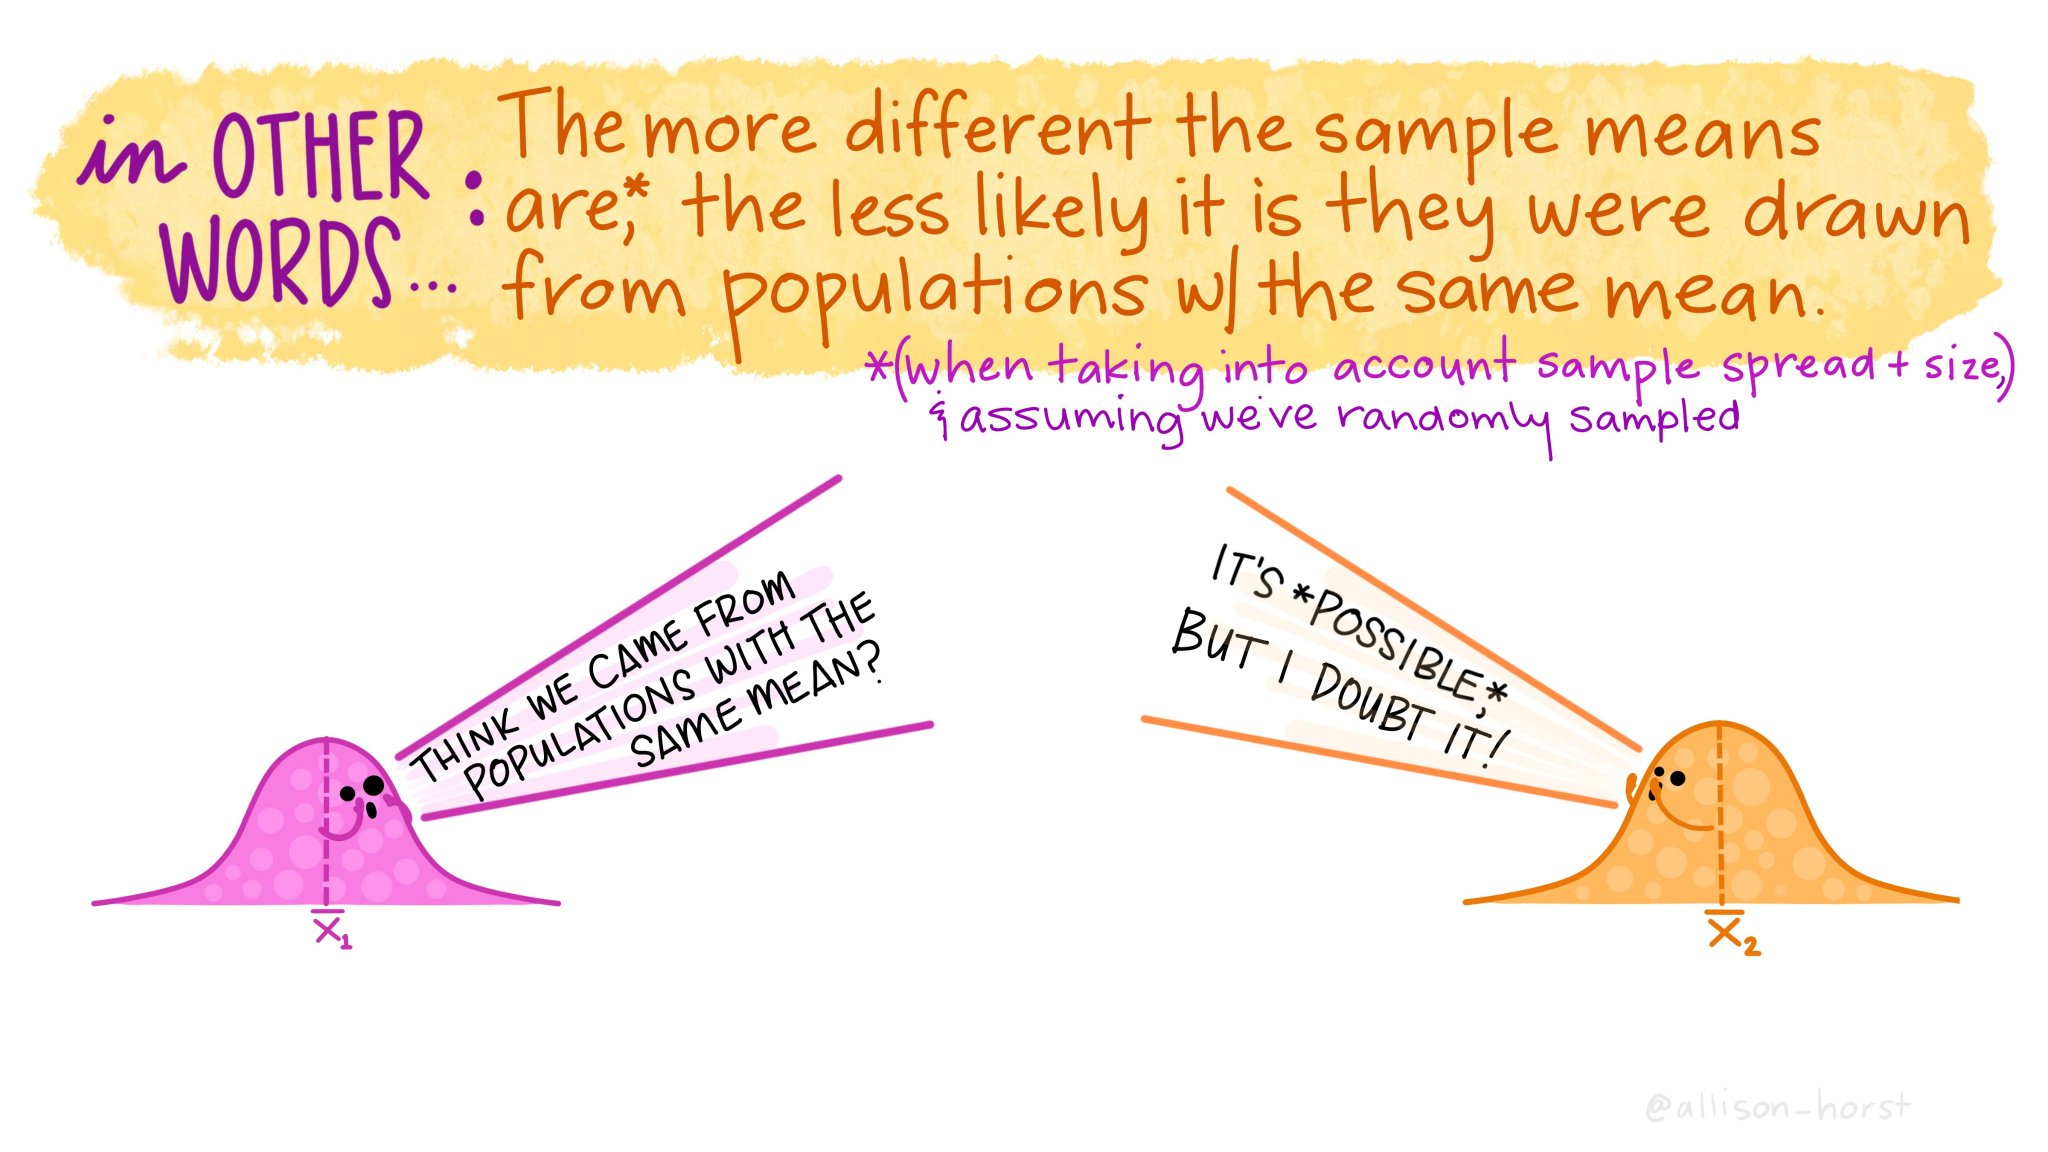 in OTHER
WORDS... :
The more different the sample means
are,* the less likely it is they were drawn
from populations w/ the same mean.
*(when taking into account sample spread + size,)
& assuming we've randomly sampled
THINK WE CAME FROM
POPULATIONS WITH THE
SAME MEAN?
IT'S *POSSIBLE,*
BUT I DOUBT IT!
x̄₁
x̄₂
@allison_horst